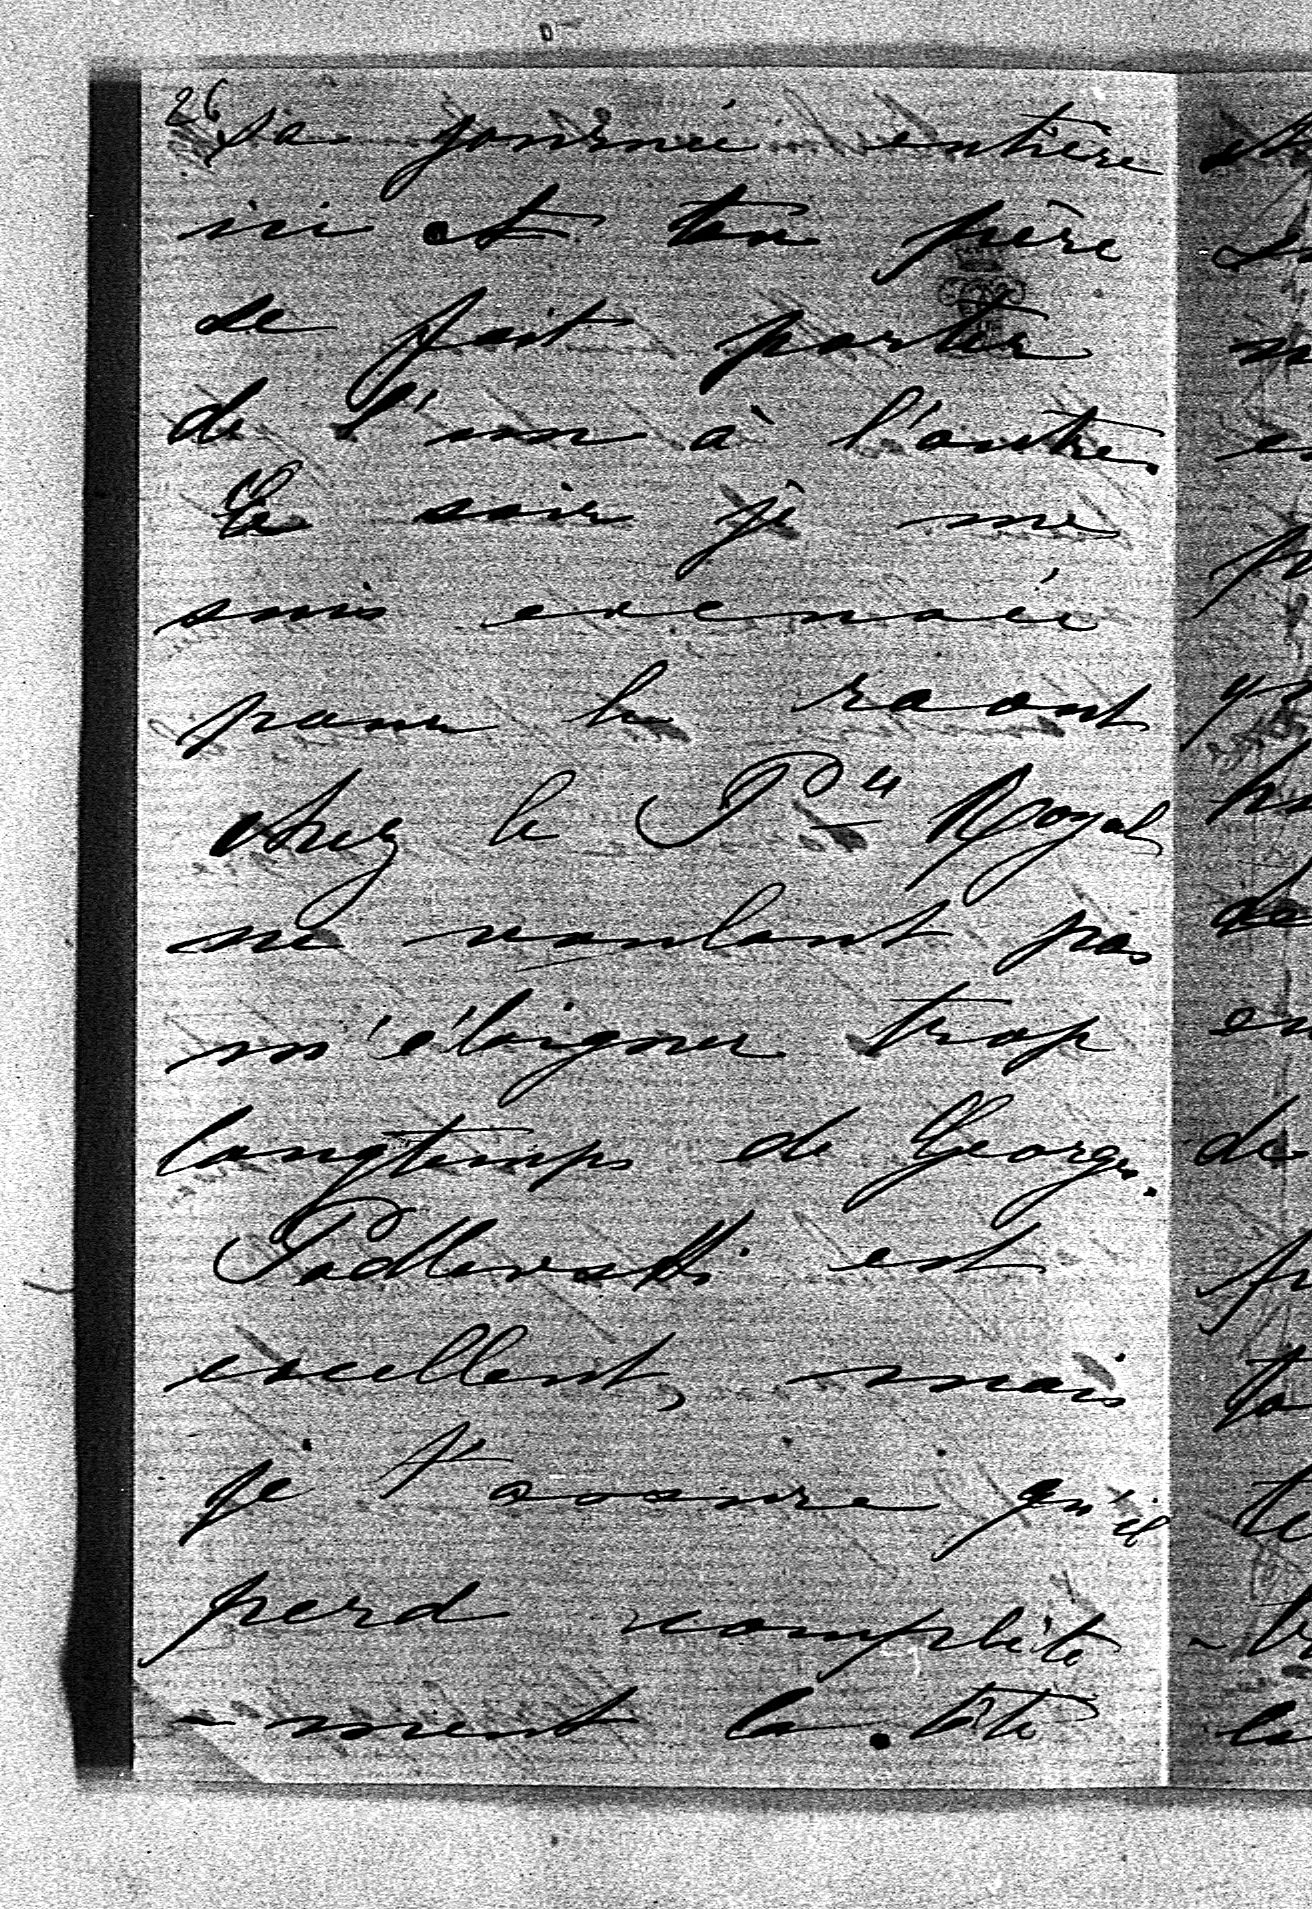 26
sa journée entière
ici et ton père
se fait porter
de l'un à l'autre.
Ce soir je me
suis excusée
pour le raout
chez le P<sup>ce</sup> Royal
ne voulant pas
m'éloigner trop
longtemps de Georges.
Padlewski est
excellent, mais
je t'assure qu'il
perd complète
-ment la tête